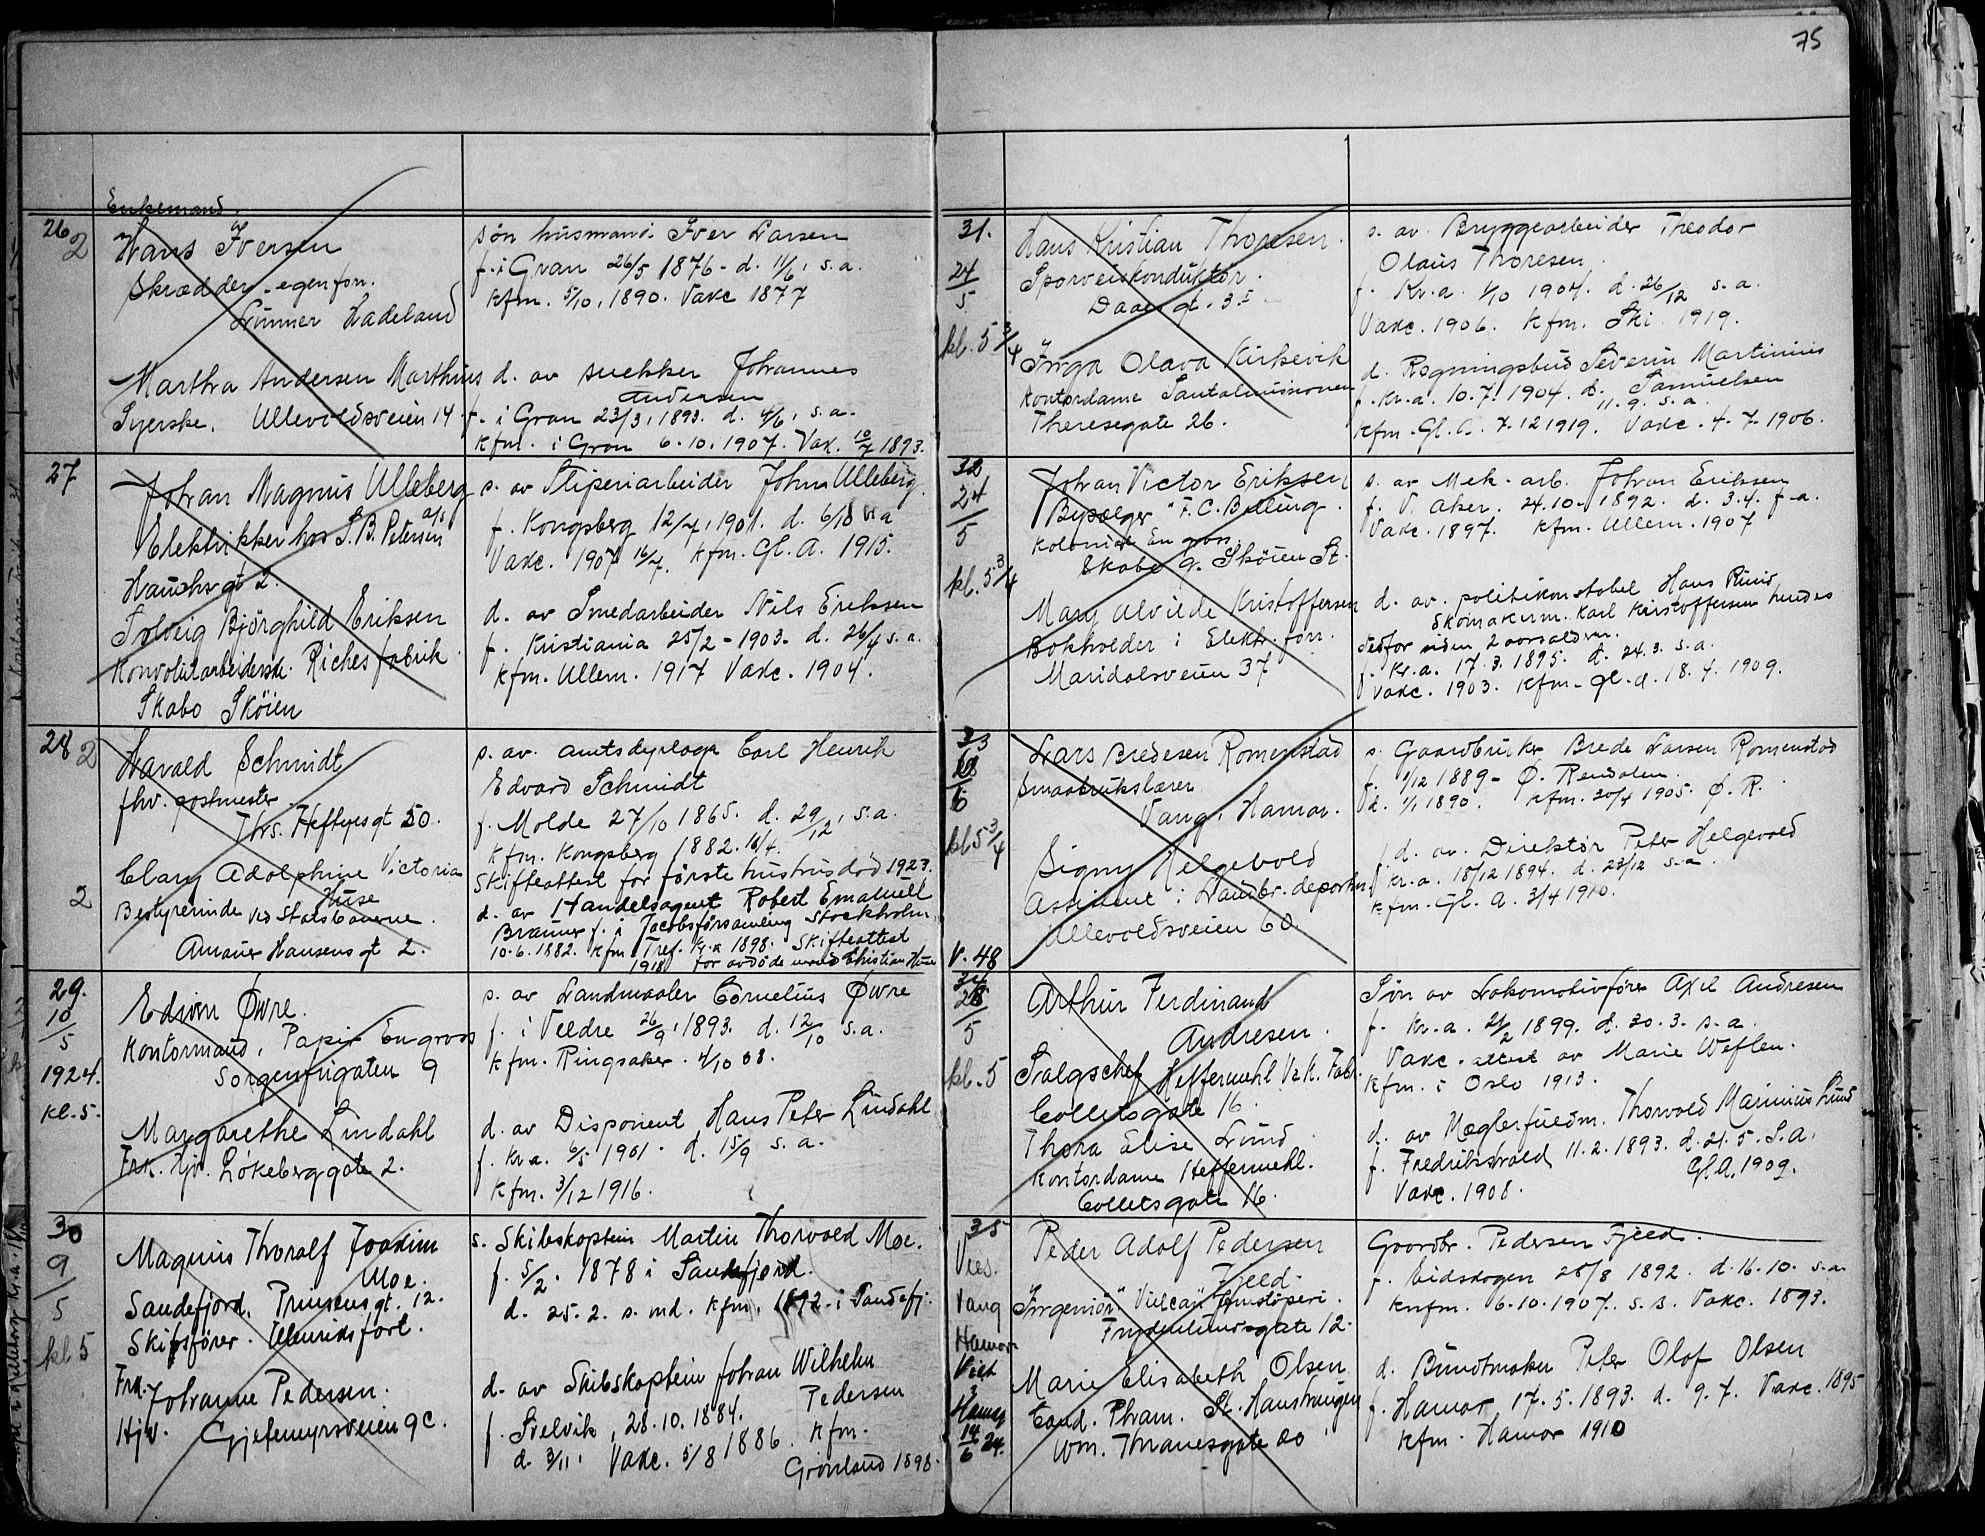 75
Enkemand.
26 2
Hans Iversen
Skrædder. egen forr.
Lunner Hadeland
søn husmand. Iver Larsen
f. i Gran 26/5 1876 - d. 11/6, s.a.
kfm. 5/10, 1890. Vakc 1877
Martha Andersen Marthins
Syerske. Ullevoldsveien 14
d. av snekker Johannes
Andersen
f. i Gran 23/3, 1893. d. 4/6, s.a.
kfm. i Gran 6.10.1907. Vax. 10/7 1893.
27
Johan Magnus Ulleberg
Elektrikker hos S. B. Petersen a/s
Hauchsgt 2.
s. av Stiperiarbeider John Ulleberg.
f. Kongsberg 12/7, 1901. d. 6/10 s.a
Vakc. 1907 16/7. kfm. Gl. A. 1915.
Solveig Bjørghild Eriksen
Konvolutarbeiderske. Riches fabrik
Skabo Skøien
d. av Smedarbeider Nils Eriksen
f. Kristiania 25/2 - 1903. d. 26/4 s.a.
kfm. Ullern. 1917 Vakc. 1904.
28 2
Harald Schmidt
fhv. postmester.
Ths. Heftyesgt 50.
s. av. amtsdyrlæge Carl Henrik
Edvard Schmidt
f. Molde 27/10 1865. d. 29/12, s.a.
kfm. Kongsberg 1882. 16/4.
Skifteattest for første hustrus død 1923.
2
Clary Adolphine Victoria
Huse
Bestyrerinde ved Statsbanerne.
Amaur Hansensgt 2.
d. av Handelsagent Robert Emanuell
Brauner f. i Jacobsforsamling Stockholm
10.6.1882. kfm Tref. kr.a 1898. Skifteattest
1918 for avdøde mand Christian Huse
29.
10/5
1924.
kl. 5.
Edvin Øvre.
Kontormand, Papir Engross
Sorgenfrigaten 9
s. av Landmaaler Cornelius Øvre
f. i Veldre 26/9, 1893. d. 12/10 s.a.
kfm. Ringsaker. 4/10 08.
Margarethe Lindahl
Frk. Hjv. Løkeberggate 2.
d. av Disponent Hans Peter Lindahl
f. kr.a. 6/5 1901. d. 15/9 s.a.
kfm. 3/12 1916.
30
9/5
kl 5
Magnus Thoralf Joakim
Moe.
Sandefjord. Prinsensgt. 12.
Skibsfører.
s. Skibskaptein Martin Thorvald Moe.
f. 5/2. 1878 i Sandefjord.
d. 25.2. s. md. kfm. 1892 i Sandefj.
Frk. Johanne Pedersen.
Hjv. Gjetemyrsveien 9 c.
d. av Skibskaptein Johan Wilhelm
Pedersen
f. Svelvik, 28.10.1884.
d. 3/11. Vakc. 5/8 1886. kfm.
Grønland 1898.
31.
24/5
kl. 5 3/4
Hans Kristian Thoresen.
Sporveiskonduktør.
Daaes gt. 35
s. av. Bryggearbeider Theodor
Olaus Thoresen.
f. Kr.a. 1/10 1904. d. 26/12 s.a.
Vakc. 1906. kfm. Ski. 1919.
Inga Olava Kirkevik
Kontordame Santalmissionen
Theresegate 26.
d. Regningsbud Severin Martinius
Samuelsen
f. kr.a. 10.7.1904. d. 11.9. s.a
kfm. Gl. A. 7.12 1919. Vakc. 4.7.1906.
32
24/5
kl. 5 3/4
Johan Victor Eriksen
Bysælger "F.C. Bølling.
Kolonial En gros.
Skabo g. Skøien St.
s. av Mek. arb. Johan Eriksen
f. V. Aker. 24.10.1892. d. 3.4. f.a.
Vakc. 1897. kfm. Ullern. 1907
Mary Alvilde Kristoffersen
Bokholder i Elektr. forr.
Maridalsveien 37
d. av. politikonstabel Hans Ruud,
Skomakerm. Karl Kristoffersen hendes
stedfor siden 2 aarsalderen.
f. kr.a. 17.3.1895. d. 24.3. s.a.
Vakc. 1903. kfm. gl.a. 18.4.1909.
33
kl 5 3/4
V. 48
Lars Bredesen Romenstad
Smaabrukslærer
Vang, Hamar.
s. Gaardbruker Brede Larsen Romenstad
f. 1/12 1889 - Ø. Rendalen.
d. 1/1 1890. kfm. 30/4 1905. Ø. R.
Signy Helgevold
Assistent i Landbr. departem.
Ullevoldsveien 60.
d. av. Direktør Peter Helgevold
f. kr.a. 18/12 1894. d. 23/12 s.a.
kfm. Gl. A. 3/4 1910.
34
28/5
kl. 5
Arthur Ferdinand
Andresen.
Salgschef Heffermehl V.&K. Fabr.
Colletsgate 16.
Søn av Lokomotivfører Axel Andresen
f. kr.a. 21/2 1899. d. 30.3. s.a.
Vakc. attest av Marie Weflen.
kfm. i Oslo 1913.
Thora Elise Lund
Kontordame Heffermehl.
Colletsgate 16.
d. av Mæglerfuldm. Thorvald Marinius Lund
f. Fredrikshald 11.2.1893. d. 21.5. s.a.
Vakc. 1908. Gl.A. 1909.
35
Vies.
Vang
Hamar
Viet
Hamar
14/6 24.
Peder Adolf Pedersen
Fjeld.
Ingeniør "Vulcan" Jernstøperi.
Frydenlundsgate 12.
Gaardbr. Pedersen Fjeld.
f. Eidskogen 28/8 1892. d. 16.10. s.a.
knfm. 6.10.1907. s.s. Vakc. 1893.
Marie Elisabeth Olsen
Cand. Pharm. St. Hanshaugen
Wm. Thranesgate 20
d. Bundtmaker Peter Olof Olsen
f. Hamar 17.5.1893. d. 9.7. Vakc. 1895
kfm. Hamar 1910